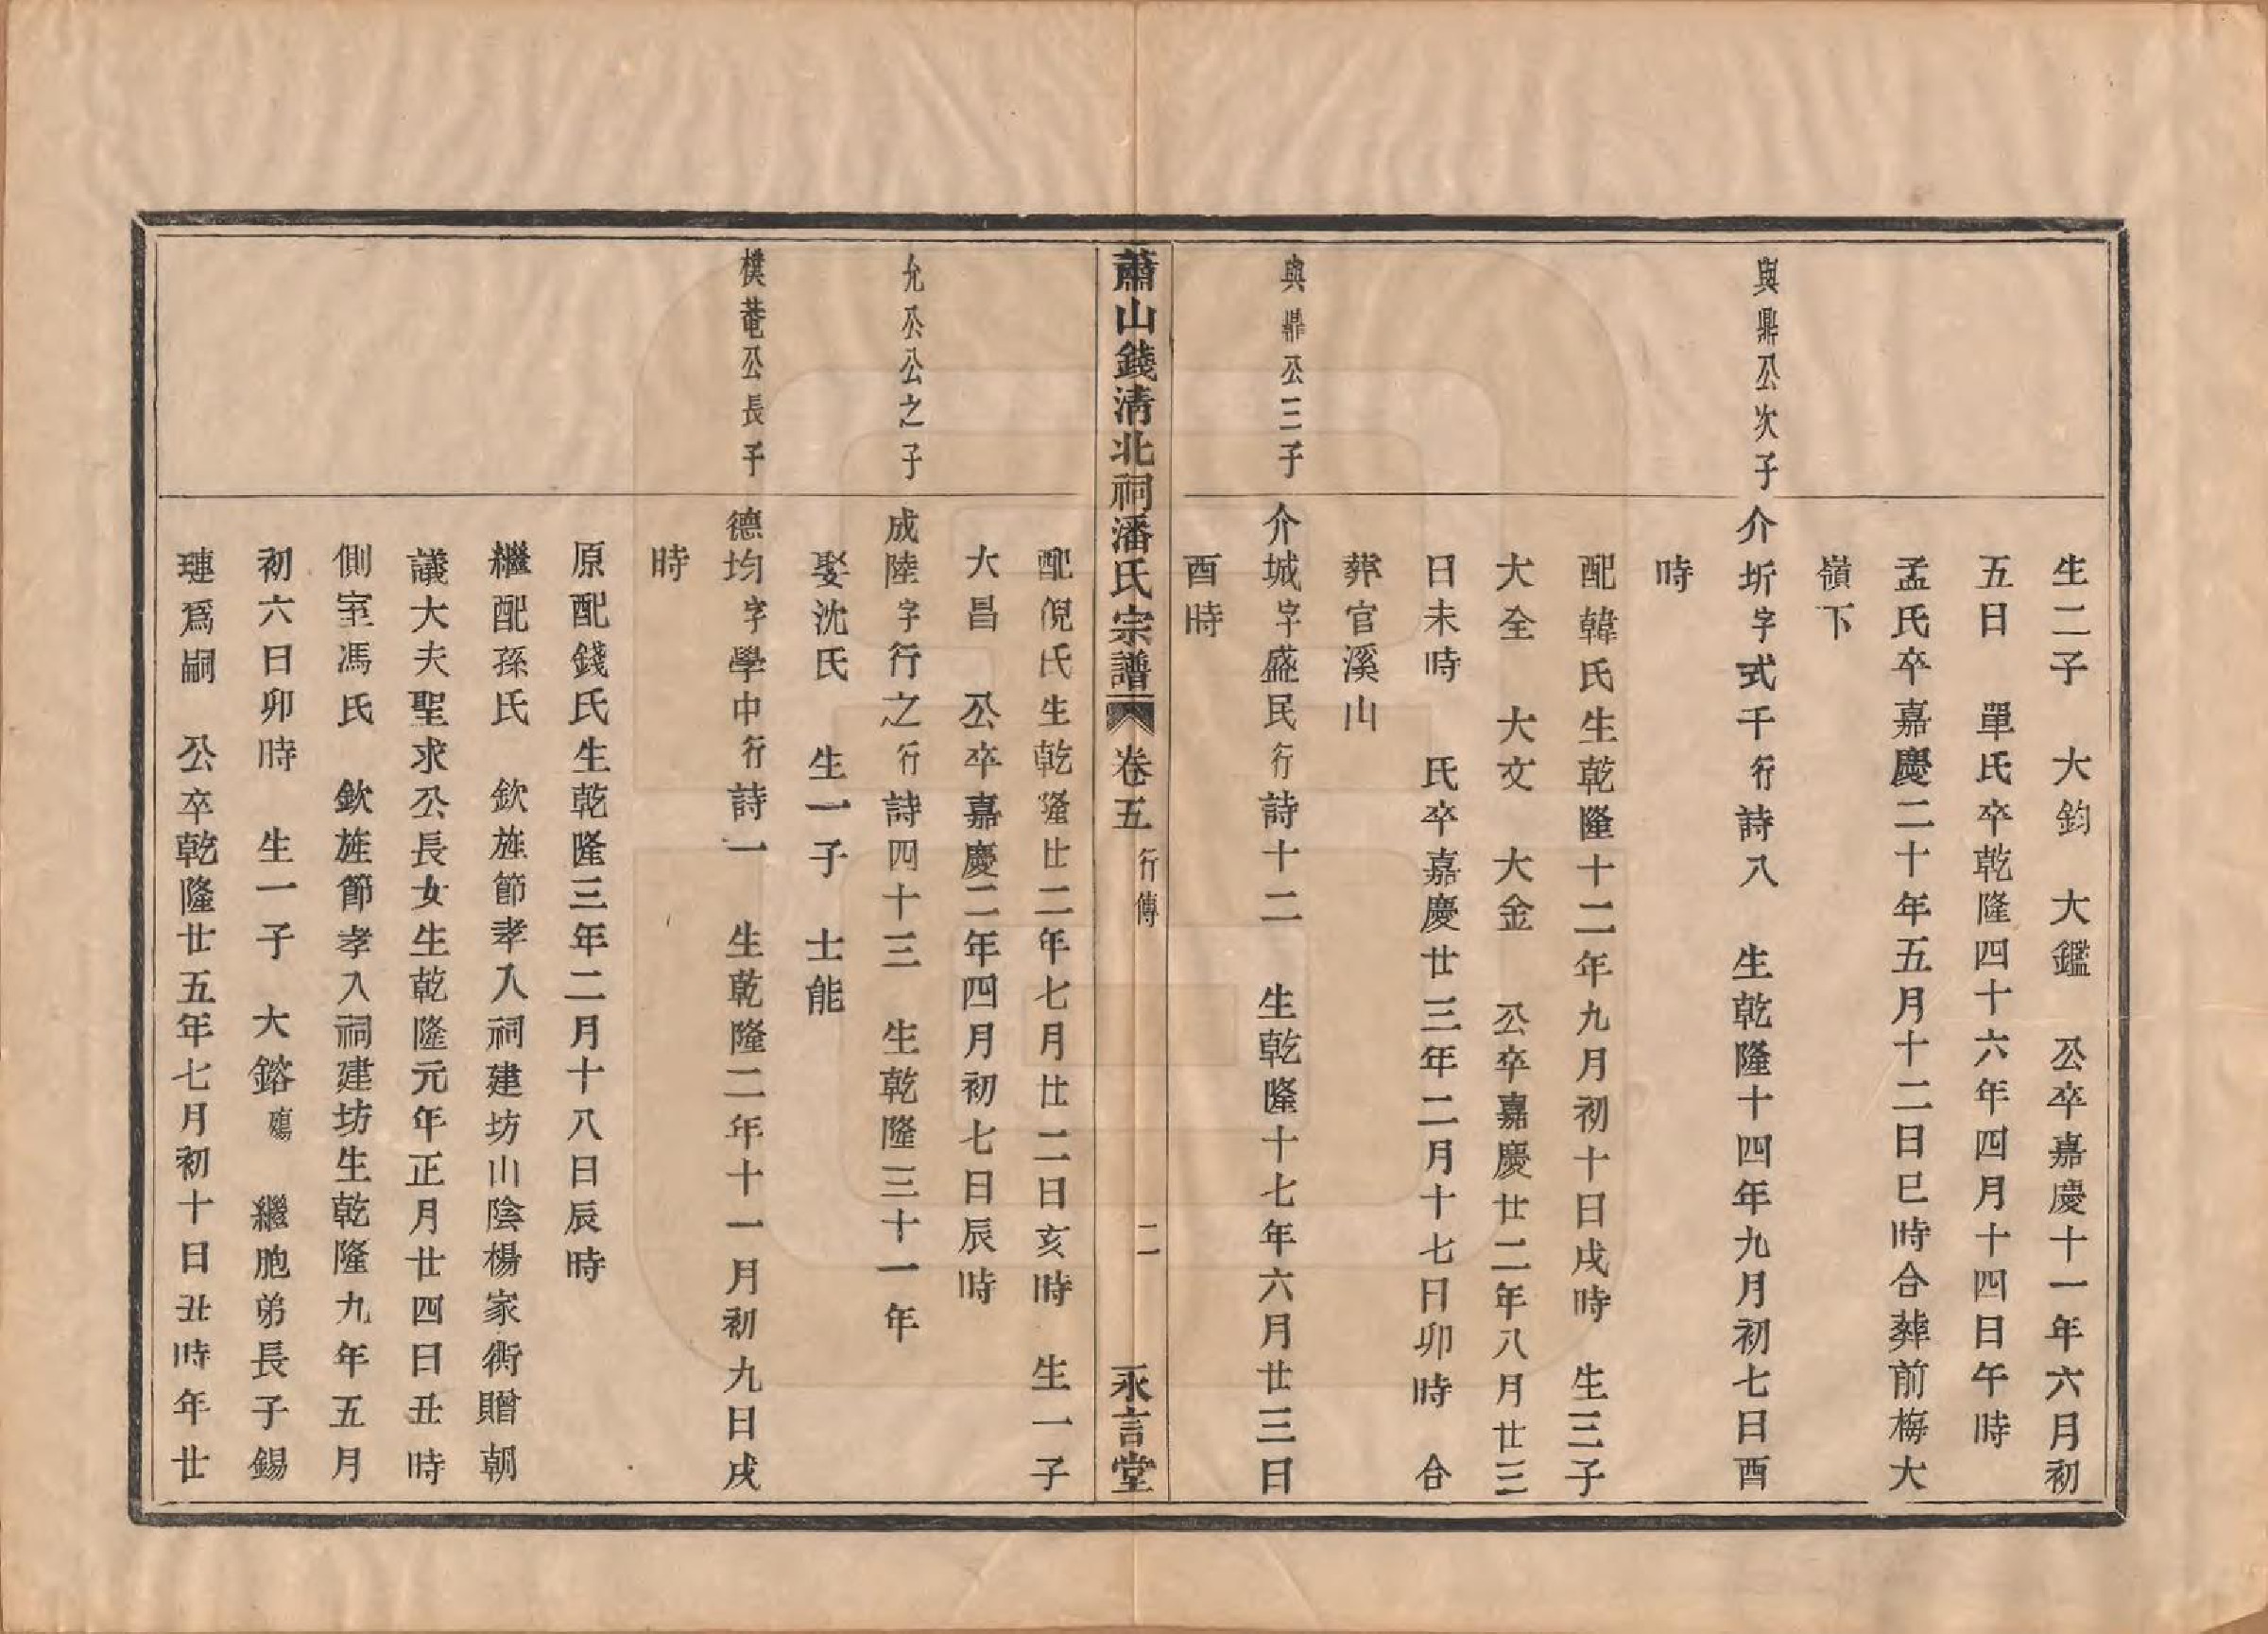 生二子　大鈞　大鑑　公卒嘉慶十一年六月初
五日　單氏卒乾隆四十六年四月十四日午時
孟氏卒嘉慶二十年五月十二日巳時合葬前梅大
嶺下
與鼎公次子　介圻字式千行詩八　生乾隆十四年九月初七日酉
時
配韓氏生乾隆十二年九月初十日戌時　生三子
大全　大文　大金　公卒嘉慶廿二年八月廿三
日未時　氏卒嘉慶廿三年二月十七日卯時　合
葬官溪山
與鼎公三子　介城字盛民行詩十二　生乾隆十七年六月廿三日
酉時
蕭山錢清北祠潘氏宗譜　卷五　行傳　二　永言堂
配倪氏生乾隆廿二年七月廿二日亥時　生一子
大昌　公卒嘉慶二年四月初七日辰時
允公公之子　成陸字行之行詩四十三　生乾隆三十一年
娶沈氏　生一子　士能
樸菴公長子　德均字學中行詩一　生乾隆二年十一月初九日戌
時
原配錢氏生乾隆三年二月十八日辰時
繼配孫氏　欽旌節孝入祠建坊山陰楊家衖贈朝
議大夫聖求公長女生乾隆元年正月廿四日丑時
側室馮氏　欽旌節孝入祠建坊生乾隆九年五月
初六日卯時　生一子　大鎔殤　繼胞弟長子錫
璉爲嗣　公卒乾隆廿五年七月初十日丑時年廿